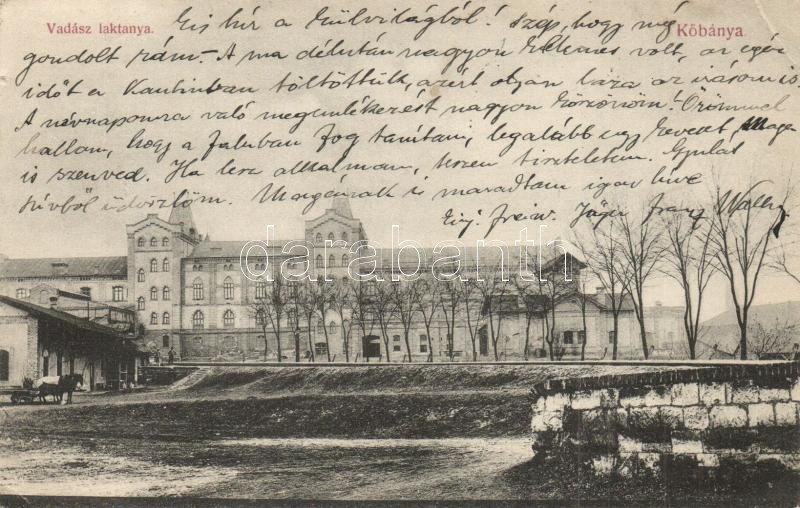 Vadász laktanya.
Kőbánya.
Kis hír a Külvilágból! Szép, hogy még
gondolt rám. - A ma délután nagyon kellemes volt, az egész
időt a Kantinban töltöttük, azért olyan az írásom is
A névnapomra való megemlékezést nagyon köszönöm! Örömmel
hallom, hogy a faluban fog tanítani, legalább egy kevset, Maga
is szenved. Ha lesz alkalmam, teszem tiszteletem. Gyulát
szívből üdvözlöm. Magának is maradtam igaz híve
Einj. freiw. Jäger Franz
darabanth